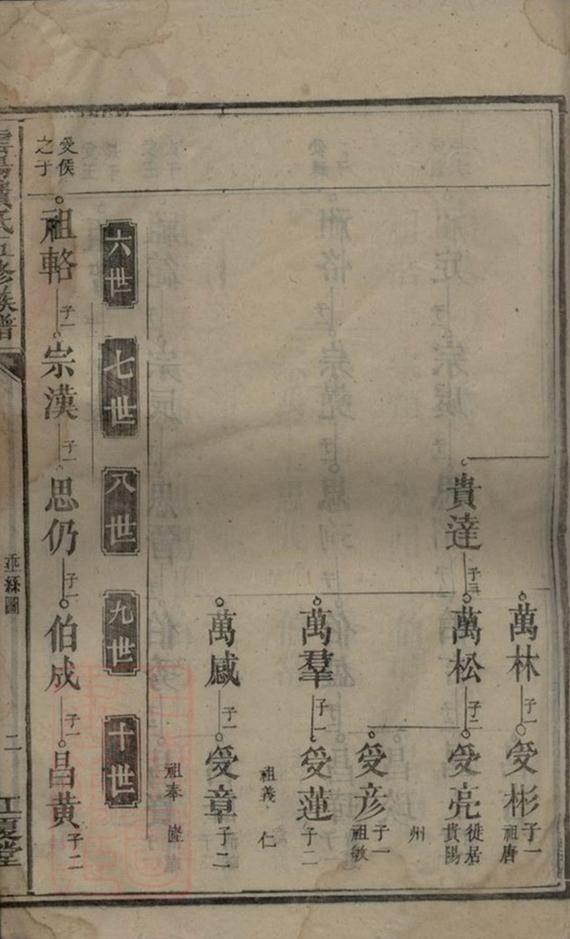 萬林 子一 受彬 子一 祖唐
貴達 子三 萬松 子二 受亮 徙居貴陽州
受彦 子一 祖敏
萬羣 子一 受蓮 子二 祖義 仁
萬感 子一 受章 子二 祖奉
六世 七世 八世 九世 十世
愛侯之子
祖輅 子一 宗漢 子一 思仍 子一 伯成 子一 昌黄 子二
氏五修族譜 垂絲圖 二 江夏堂